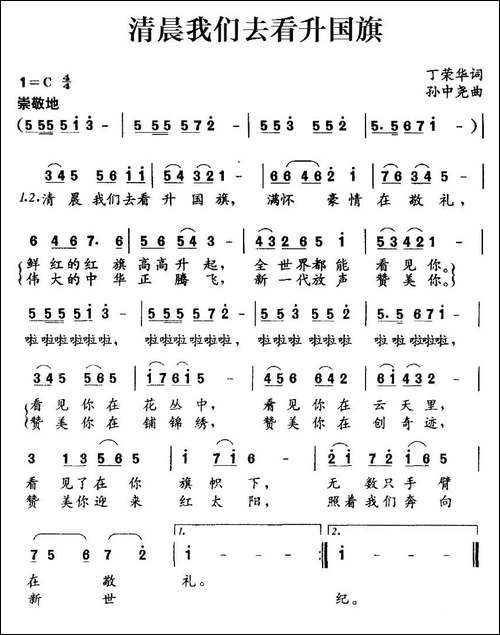 清晨我们去看升国旗
1=C 4/4
丁荣华词
崇敬地
孙中尧曲
(5 55 5 5 1 3 - | 5 55 5 5 7 2 - | 5 5 5 3 5 5 2 | 5. 5 6 7 1 - ) |
3 4 5 5 6 1 1 | 5 4 3 2 1 - | 6 6 4 6 2 1 | 7 6 3 4 5 - |
1.2.清晨我们去看升国旗，满怀豪情在敬礼，
6 4 6 7. 6 | 5 6 5 4 3 - | 4 3 2 6 5 1 | 5 3 4 2 1 - |
鲜红的红旗高高升起，全世界都能看见你。
伟大的中华正腾飞，新一代放声赞美你。
5 55 5 5 1 3 | 5 55 5 5 7 2 | 5 5 5 3 5 5 2 | 5. 5 6 7 1 - |
啦啦啦啦啦啦，啦啦啦啦啦啦，啦啦啦啦啦啦，啦啦啦啦啦，
3 4 5 5 6 5 | 1 7 6 1 5 - | 4 5 6 6 4 6 | 5 4 3 1 2 - |
看见你在花丛中，看见你在云天里，
赞美你在铺锦绣，赞美你在创奇迹，
3 1 3 5 5 | 1 7 1 6 - | 2 1 7 2 1 6 5 |
看见了在你旗帜下，无数只手臂
赞美你迎来红太阳，照着我们奔向
7 5 6 7 2 | 1. 1 - - - :‖ 2. 1 - - - ‖
在敬礼。
新世纪。